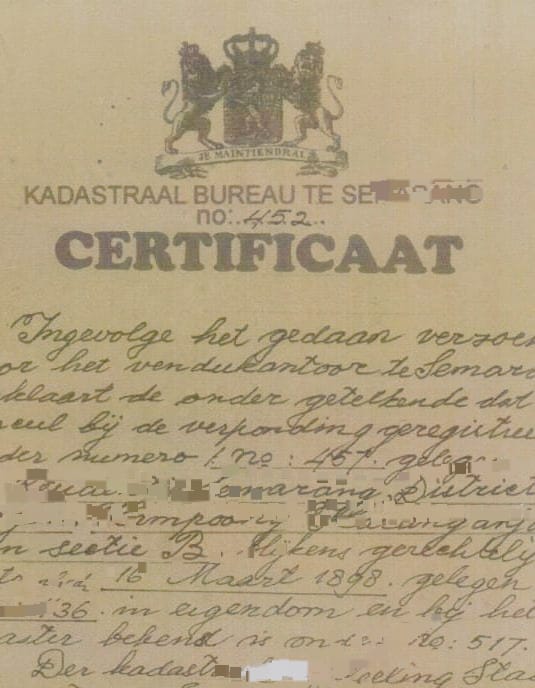 JE MAINTIENDRAI
KADASTRAAL BUREAU TE
no: 452
CERTIFICAAT
Ingevolge het gedaan verzoek
or het vendukantoor te Semara
klaart de onder getelkende dat
ceul bij de verponding geregistree
der numero 1 no: 457. geleg
Semarang, District
in sectie B. blijkens gerechtelij
16 Maart 1898. gelegen
36. in eigendom en bij het
aster bekend is onder No: 517.
Der kadast